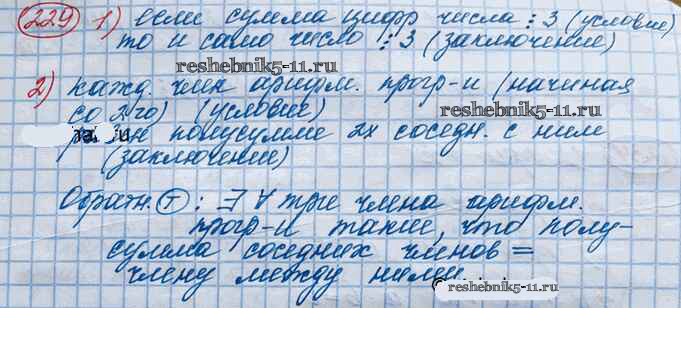 (229) 1) если сумма цифр числа ⋮ 3 (условие)
то и само число ⋮ 3 (заключение)
reshebnik5-11.ru
2) кажд. член арифм. прогр-и (начиная
со 2го) (условие) reshebnik5-11.ru
полусумме 2х соседн. с ним
(заключение)
Обратн. Т : ∃ ∀ три члена арифм.
прогр-и такие, что полу-
сумма соседних членов =
члену между ними.
reshebnik5-11.ru